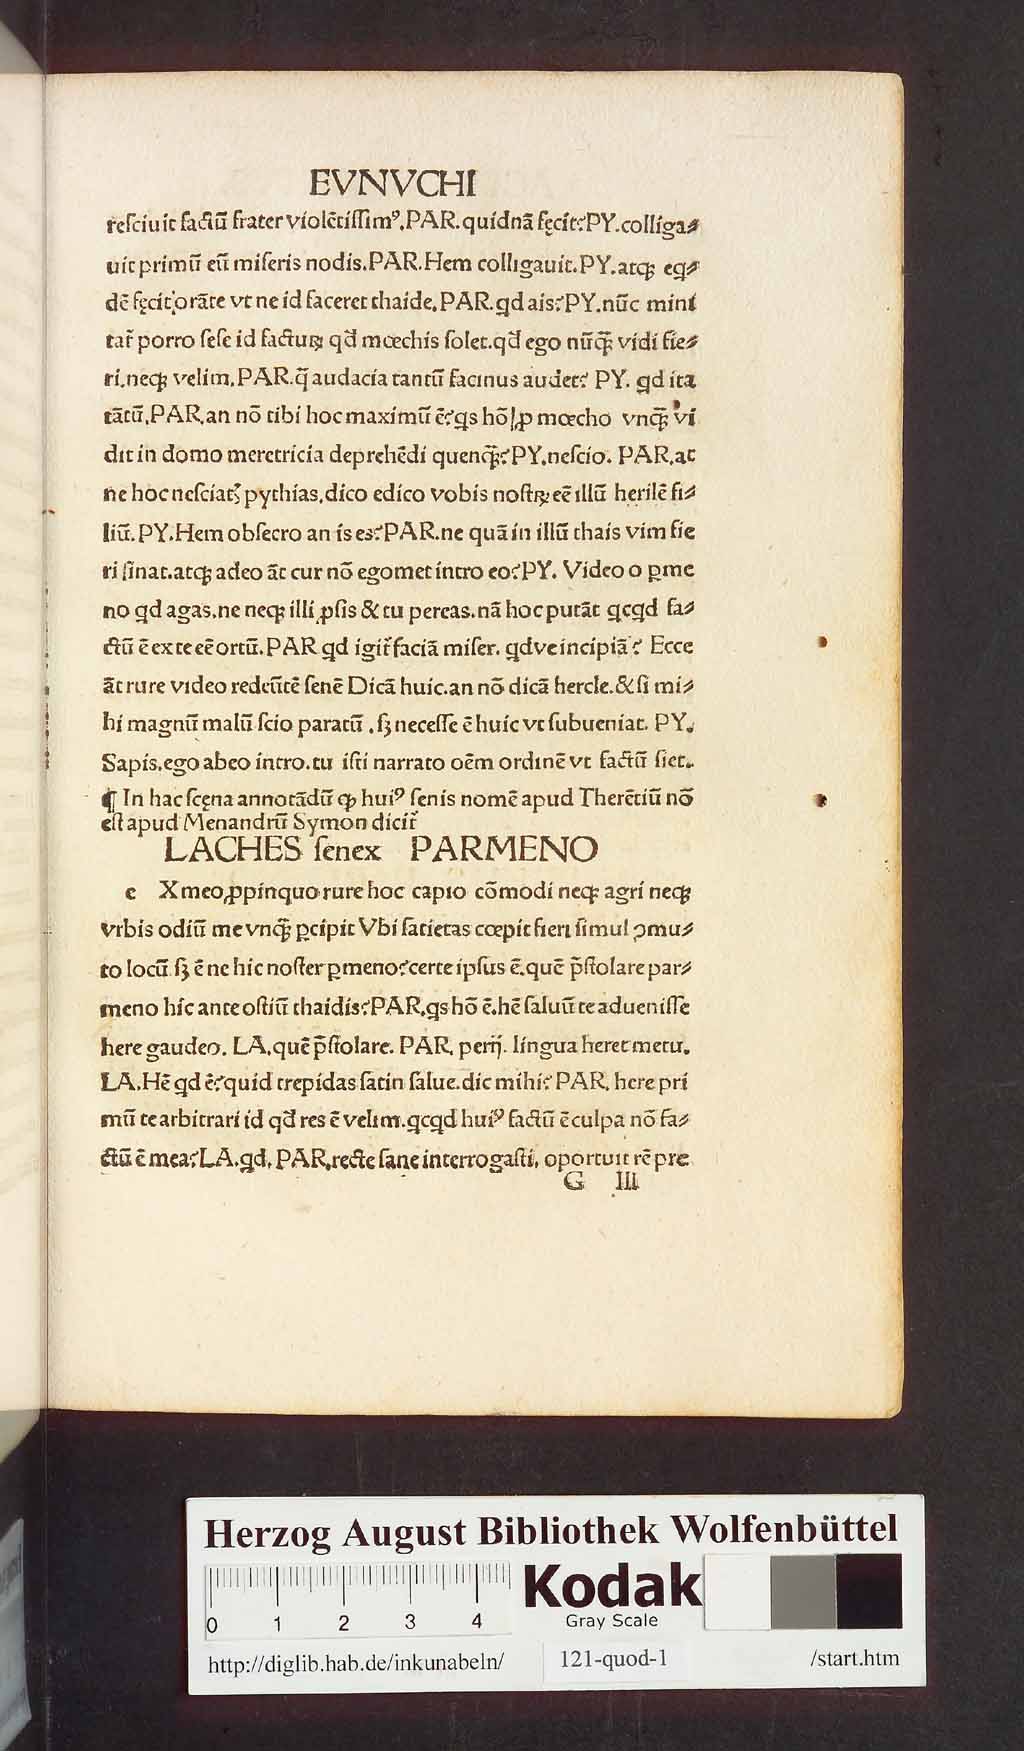 EVNVCHI
reſciuit factū frater violētiſſimꝰ.PAR.quidnā fęcit?PY.colliga⸗
uit primū eū miſeris nodis.PAR.Hem colligauit.PY.atqꝫ eq⸗
dē fęcit orāte vt ne id faceret thaide.PAR.qd ais?PY.nūc mini
tat̄ porro ſeſe id facturꝝ qd̄ mœchis ſolet.qd̄ ego nūqꝫ̄ vidi fie⸗
ri.neqꝫ velim.PAR.q̄ audacia tantū facinus audet? PY. qd ita
tātū.PAR.an nō tibi hoc maximū ē?qs hō ꝓ mœcho vnqꝫ̄ vi
dit in domo meretricia deprehēdi quenqꝫ̄?PY.neſcio. PAR.at
ne hoc neſciatꝭ pythias.dico edico vobis noſtrꝝ eē illū herilē fi⸗
liū.PY.Hem obſecro an is es?PAR.ne quā in illū thais vim fie
ri ſinat.atqꝫ adeo āt cur nō egomet intro eo?PY. Video o ꝑme
no qd agas.ne neqꝫ illi ꝓſis & tu pereas.nā hoc putāt qcqd fa⸗
ctū ē ex te eē ortū.PAR qd igit̄ faciā miſer. qdve incipiā? Ecce
āt rure video redeūtē ſenē Dicā huic.an nō dicā hercle.& ſi mi⸗
hi magnū malū ſcio paratū .ſꝫ neceſſe ē huic vt ſubueniat. PY.
Sapis.ego abeo intro.tu iſti narrato oēm ordinē vt factū ſiet.
¶ In hac ſcęna annotādū qꝫ huiꝰ ſenis nomē apud Therētiū nō
eſt apud Menandrū Symon dicit̄
LACHES ſenex PARMENO
e Xmeo ꝓpinquo rure hoc capio cōmodi neqꝫ agri neqꝫ
vrbis odiū me vnqꝫ̄ ꝑcipit Vbi ſatietas cœpit fieri ſimul ꝯmu⸗
to locū ſꝫ ē ne hic noſter ꝑmeno?certe ipſus ē.quē p̄ſtolare par⸗
meno hic ante oſtiū thaidis?PAR.qs hō ē.hē ſaluū te adueniſſe
here gaudeo. LA.quē p̄ſtolare. PAR. perij. lingua heret metu.
LA.Hē qd ē?quid trepidas ſatin ſalue.dic mihi? PAR. here pri
mū te arbitrari id qd̄ res ē velim.qcqd huiꝰ factū ē culpa nō fa⸗
ctū ē mea?LA.qd. PAR.recte ſane interrogaſti. oportuit rē pre
G III
Herzog August Bibliothek Wolfenbüttel
0 1 2 3 4
Kodak
Gray Scale
http://diglib.hab.de/inkunabeln/ 121-quod-1 /start.htm